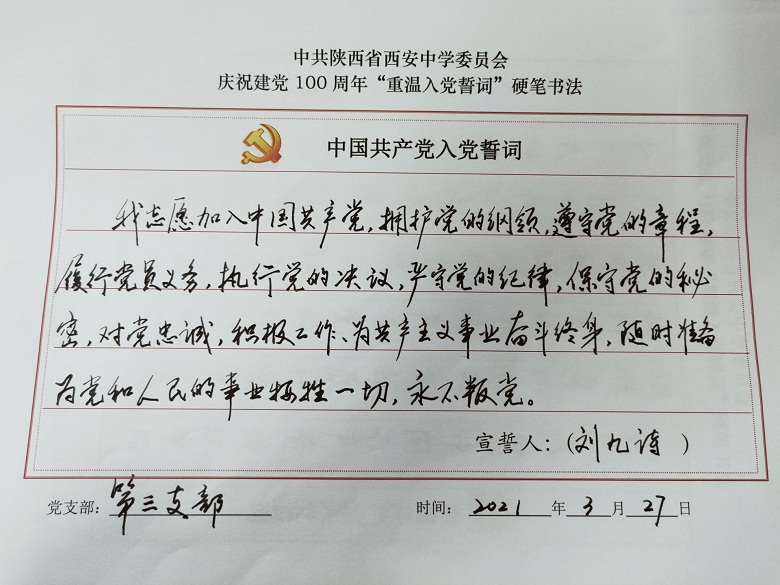 中共陕西省西安中学委员会
庆祝建党 100 周年“重温入党誓词”硬笔书法
中国共产党入党誓词
我志愿加入中国共产党，拥护党的纲领，遵守党的章程，
履行党员义务，执行党的决议，严守党的纪律，保守党的秘
密，对党忠诚，积极工作、为共产主义事业奋斗终身，随时准备
为党和人民的事业牺牲一切，永不叛党。
宣誓人：（刘九诗 ）
党支部：第三支部 时间： 2021 年 3 月 27 日